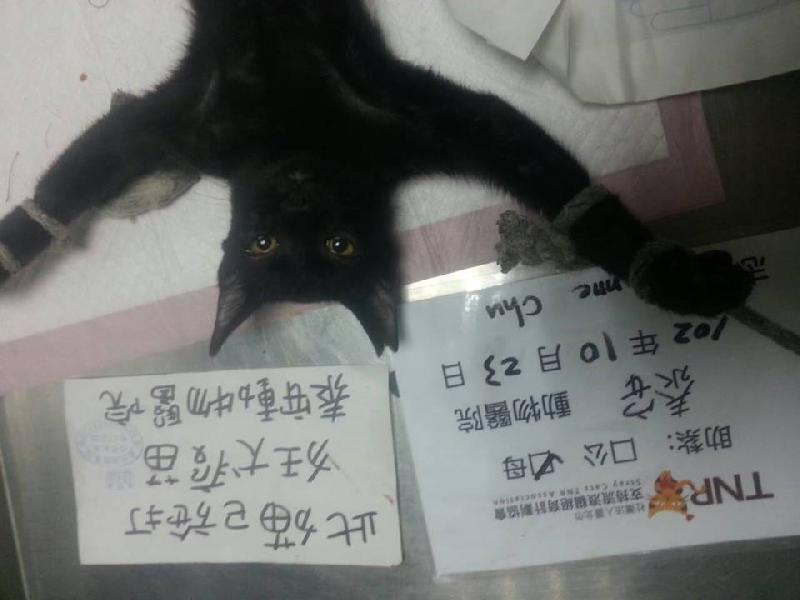 此貓已施打
狂犬疫苗
泰安動物醫院
TNR
社團法人臺北市
支持流浪貓絕育計劃協會
Stray Cats TNR Association
□公 ☑母
助紮: 泰安 動物醫院
102年10月23日
志
Chu